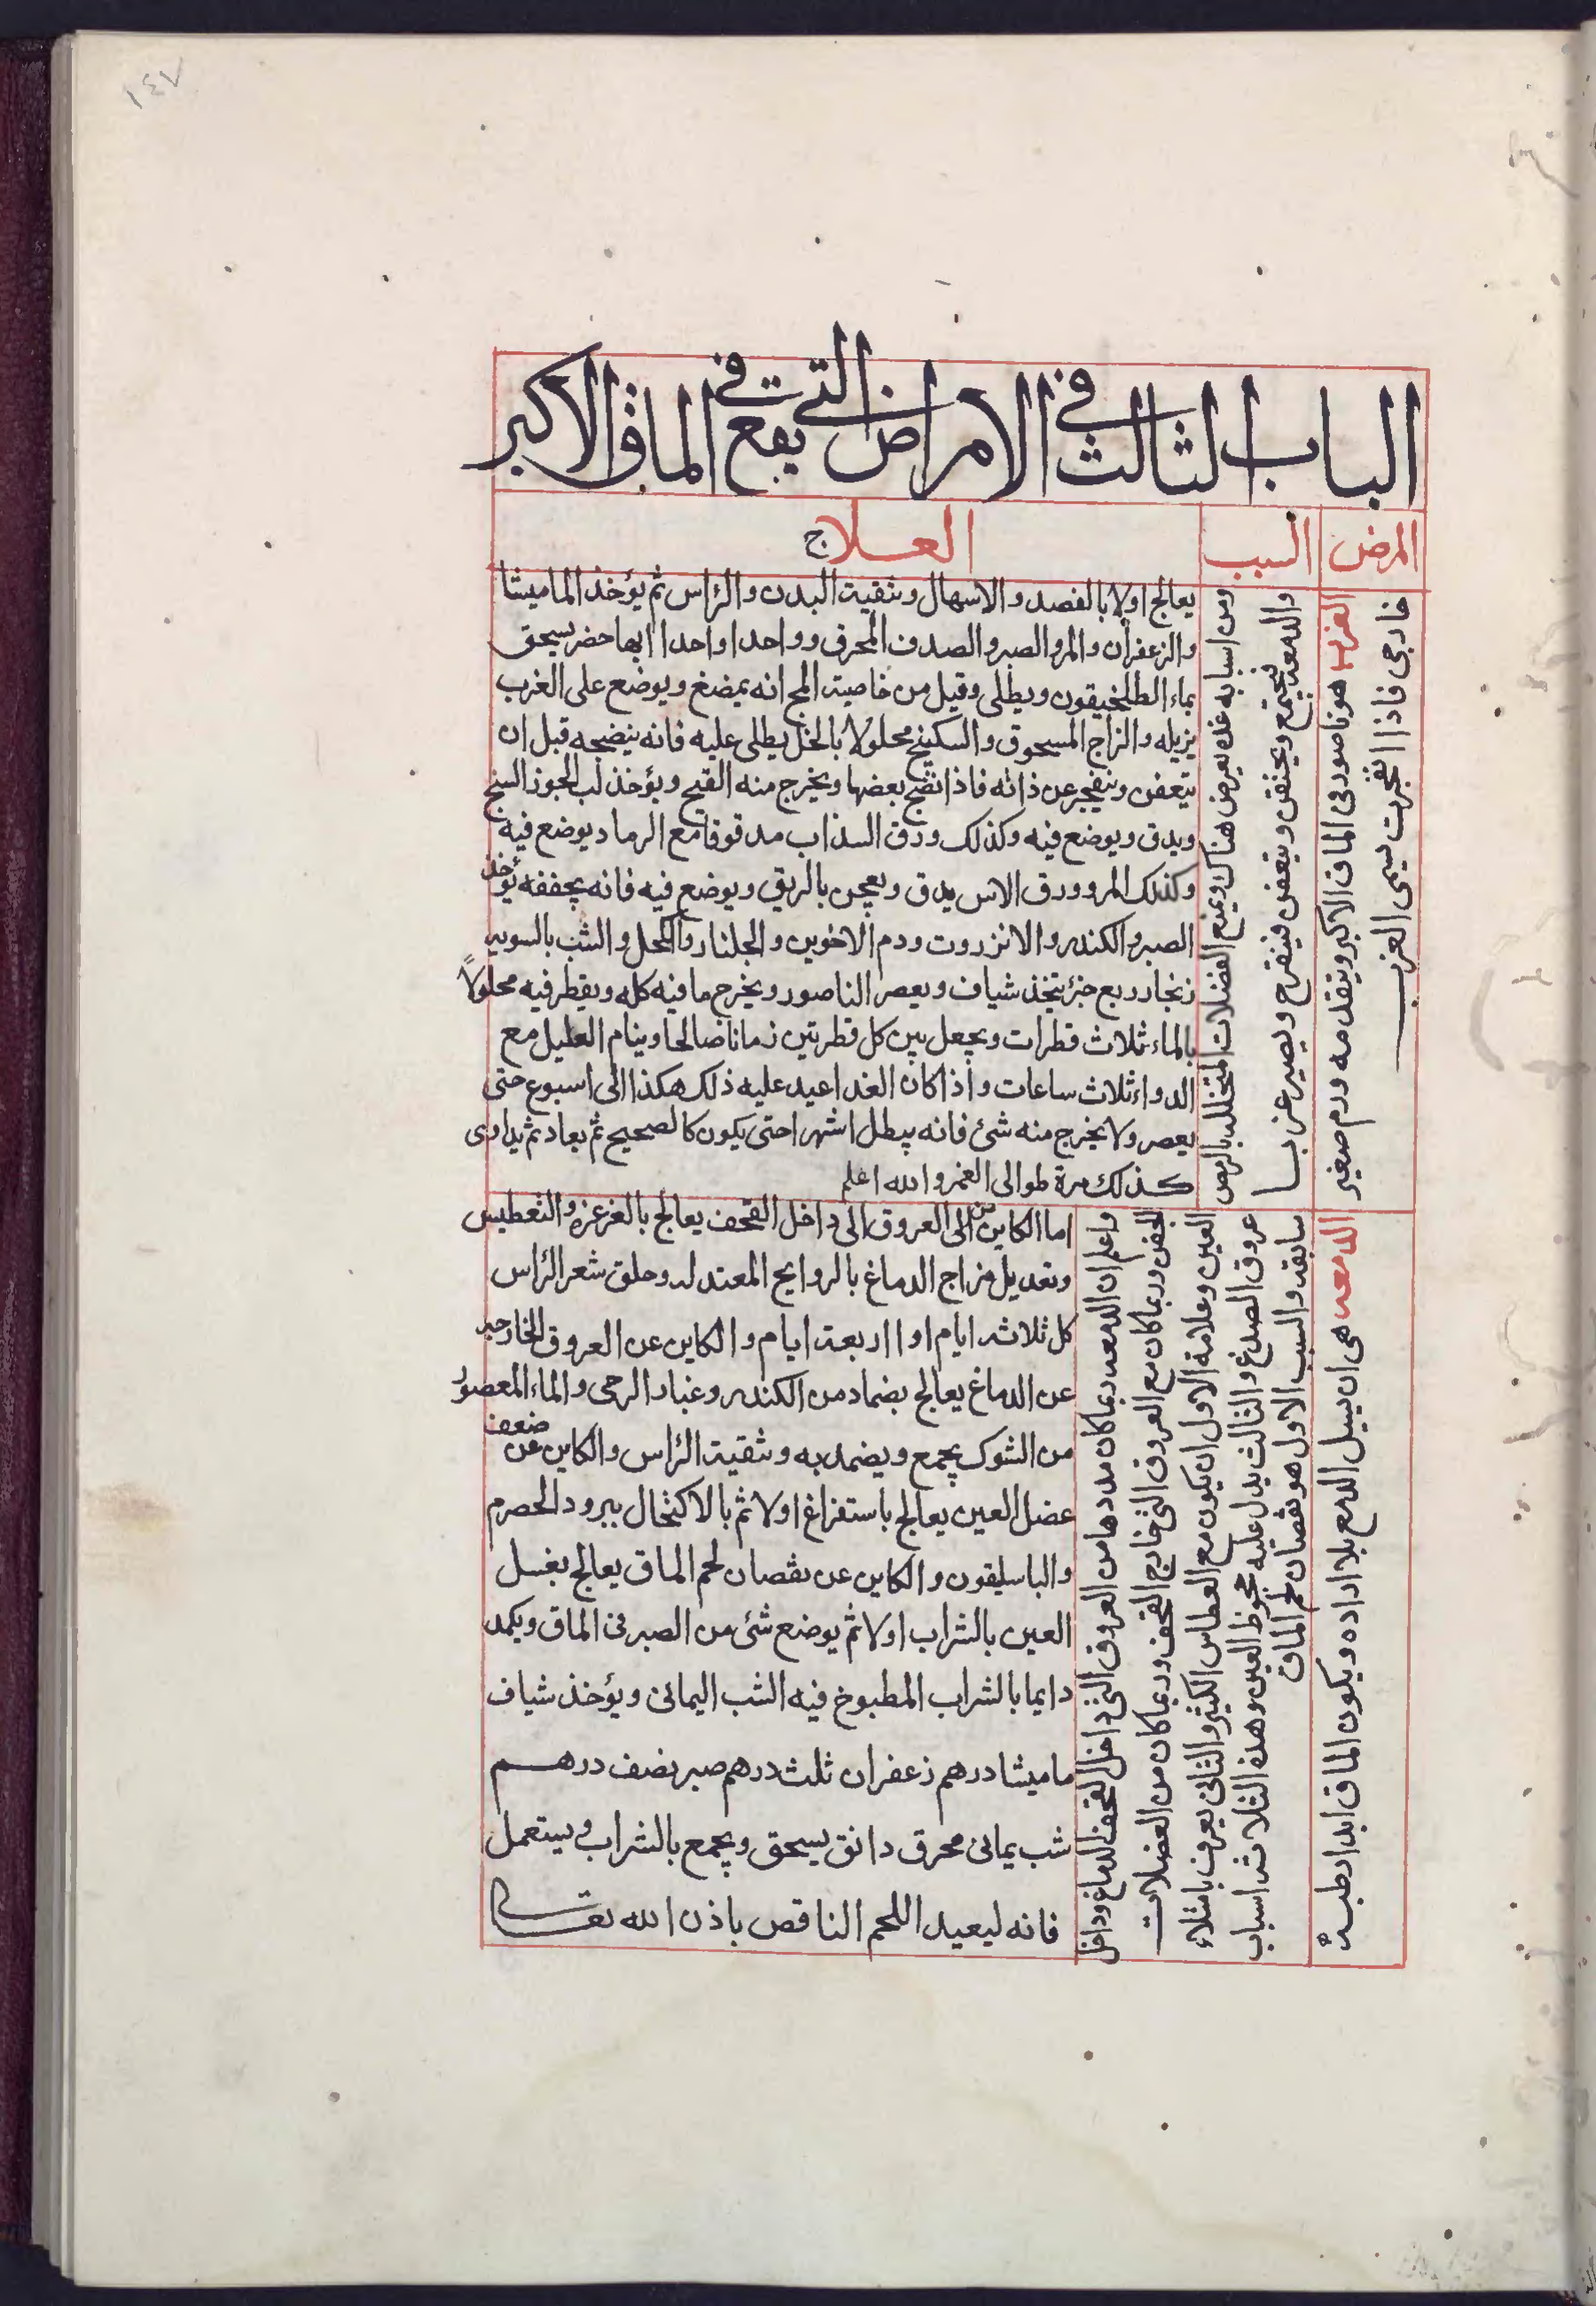 ١٤٧
الباب الثالث في الامراض التي تقع في الماق الاكبر
المرض
السبب
العلاج
الغرب هو ناصور في الماق الاكبر ويتقدمه ورم صغير
خارجي فاذا انفجرت سمى الغرب
والدمعة فيجتمع ويحتقن ويتعفن فيتقرح ويصير غربا
ومن اسبابه غده يعرض هناك ويمنع الفضلات المتحللة بالرمص
يعالج اولا بالفصد والاسهال وتنقية البدن والرأس ثم يؤخذ الماميثا
والزعفران والمر والصبر والصدف المحرق وواحدا واحدا ايها حضر يسحق
بماء الطلخيقون ويطلى وقيل من خاصية المج انه يمضغ ويوضع على الغرب
يزيله والزاج المسحوق والسكبينج محلولا بالخل يطلى عليه فانه ينضجه قبل ان
يتعفن وينفجر عن ذاته فاذا نضج بعضها ويخرج منه القيح ويؤخذ لب الجوز السنخ
ويدق ويوضع فيه وكذلك ورق السذاب مدقوقا مع الرماد يوضع فيه
وكذلك المر وورق الاس يدق ويعجن بالريق ويوضع فيه فانه يجففه يؤخذ
الصبر والكندر والانزروت ودم الاخوين والجلنار والكحل والشب بالسويه
زنجار ربع جزء يتخذ شياف ويعصر الناصور ويخرج ما فيه كله ويقطر فيه محلولاً
بالماء ثلاث قطرات ويجعل بين كل قطرتين زمانا صالحا وينام العليل مع
الدواء ثلاث ساعات واذا كان الغد اعيد عليه ذلك هكذا الى اسبوع حتى
يعصر ولا يخرج منه شئ فانه يبطل اشهرا حتى يكون كالصحيح ثم يعاد ثم يداوى
كذلك مرة طوالى العمر والله اعلم
الدمعه هى ان يسيل الدمع بلا اراده ويكون الماق ابدا رطبة
سابقه والسبب الاول هو نقصان لحم الماق
عروق الصدغ والثالث يدل عليه جحوظ العين وهذه الثلاث اسباب
العين وعلامة الاول ان يكون مع العطاس الكثير والثانى يعرف بامتلاء
الجفن وربما كان مع العروق التى خارج القحف وربما كان من العضلات
واعلم ان الدمعه ربما كان مددها من العروق التى داخل القحف الدماغ وداخل
اما الكاين من الى العروق الى داخل القحف يعالج بالغرغره والتعطيس
وتعديل مزاج الدماغ بالروايح المعتدله وحلق شعر الرأس
كل ثلاثة ايام او اربعة ايام والكاين عن العروق الخارجيه
عن الدماغ يعالج بضماد من الكندر وغبار الرحى والماء المعصور
من الشوك يجمع ويضمد به وتنقية الرأس والكاين عن ضعف
عضل العين يعالج باستفراغ اولا ثم بالاكتحال ببرود الحصرم
والباسليقون والكاين عن نقصان لحم الماق يعالج بغسل
العين بالشراب اولا ثم يوضع شئ من الصبر فى الماق ويكمد
دايما بالشراب المطبوخ فيه الشب اليمانى ويؤخذ شياف
ماميثا درهم زعفران ثلث درهم صبر نصف درهم
شب يمانى محرق دانق يسحق ويجمع بالشراب ويستعمل
فانه ليعيد اللحم الناقص باذن الله تعالى